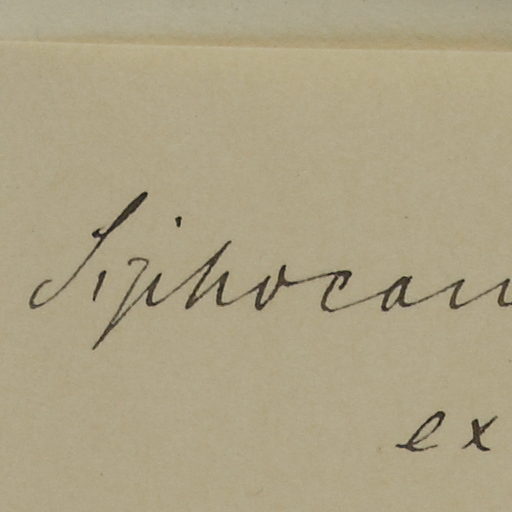 Siphocam
ex